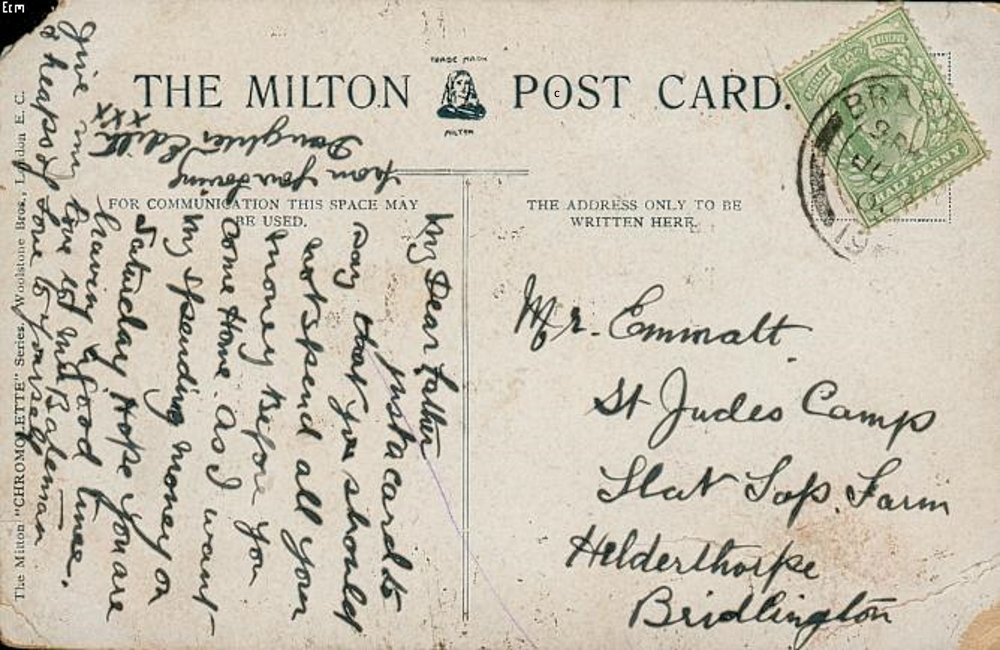 Erm
TRADE MARK
THE MILTON POST CARD.
MILTON
FOR COMMUNICATION THIS SPACE MAY
BE USED.
THE ADDRESS ONLY TO BE
WRITTEN HERE.
HALF PENNY
My Dear Father
just a card to
say that you should
not spend all your
money Before you
Come Home. As I want
my spending money on
Saturday. Hope you are
having a good time.
Give my love to Mr Bateman
& heaps of love to yourself
from your loving
Daughter Edith
xxx
Mr. Emmatt.
St Judes Camp
Flat Top. Farm
Hilderthorpe
Bridlington
The Milton "CHROMOLETTE" Series. Woolstone Bros., London E. C.